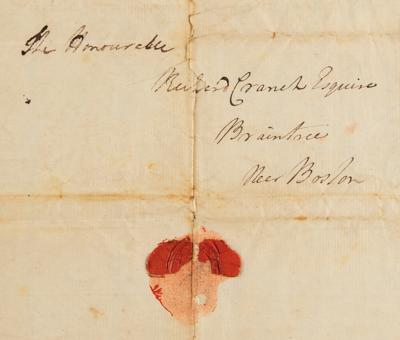 The Honourable
Richard Cranch Esquire
Braintree
Near Boston